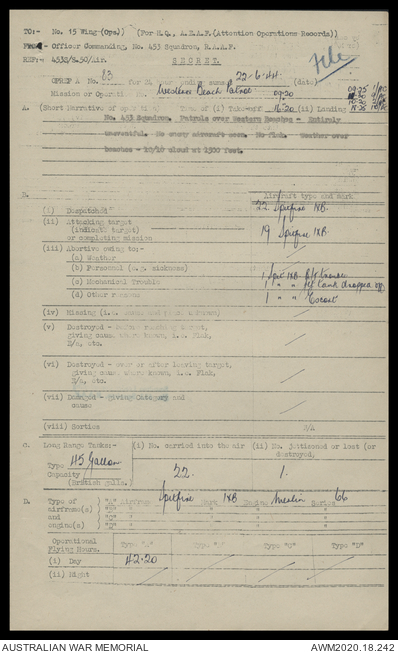 TO:- No. 15 Wing (Ops) (For H.Q., A.E.A.F. (Attention Operations Records))
Officer Commanding, No. 453 Squadron, R.A.A.F.
REF:- 453S/8.50/Air. S E C R E T. File
A No. 83 22-6-44. (date)
Mission or Beach Patrol
A. (Short Narrative of Take-off 16.20 (ii) Landing
No. 453 Squadron. Patrols over Western Beaches - Entirely
uneventful. No enemy aircraft seen. No flak. Weather over
beaches - 10/10 cloud at 1500 feet.
B. Aircraft type and mark
(i) Despatched 22 Spitfire IXB.
(ii) Attacking target
(indicate target)
or completing mission 19 Spitfire IXB.
(iii) Abortive owing to:-
(a) Weather
(b) Personnel (e.g. sickness)
(c) Mechanical Trouble
(d) Other reasons 1 " " Escort
(iv) Missing
(v) Destroyed - before reaching target,
giving cause where known, i.e. Flak,
E/a, etc.
(vi) Destroyed - over or after leaving target,
giving cause where known, i.e. Flak,
E/a, etc.
(vii) Damaged - giving Category and
cause
(viii) Sorties
C. Long Range Tanks:- (i) No. carried into the air (ii) No. jettisoned or lost (or
destroyed,
Type 45 Gallon
Capacity 22. 1.
(British galls.)
D. Type of "A" Airframe Spitfire Mark IXB Engine Merlin Series 66
airframe(s)
and
engine(s)
Operational
Flying Hours. Type "A" Type "B" Type "C" Type "D"
(i) Day 42.20
(ii) Night
AUSTRALIAN WAR MEMORIAL AWM2020.18.242